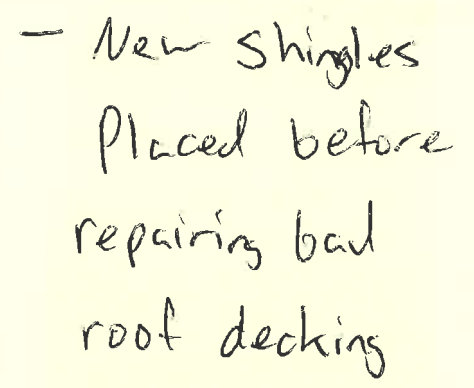 - New shingles
Placed before
repairing bad
roof decking